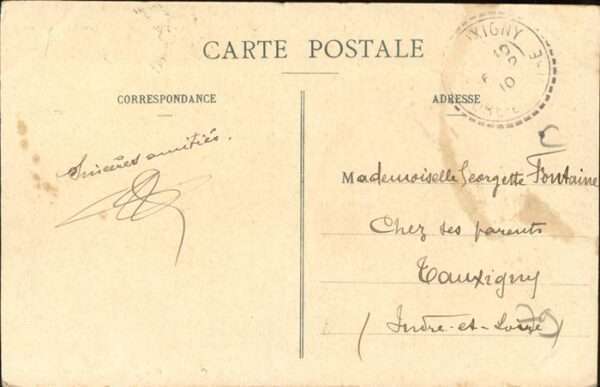 CARTE POSTALE
CORRESPONDANCE
ADRESSE
Sincères amitiés.
Mademoiselle Georgette Fontaine
Chez ses parents
Tauxigny
(Indre-et-Loire)